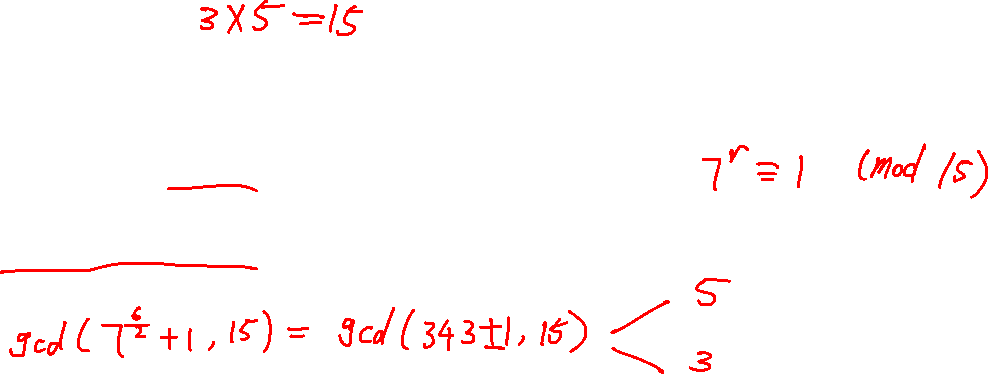 3×5=15
7^r ≡ 1 (mod 15)
5
gcd(7^{6/2}+1, 15) = gcd(343±1, 15)
3